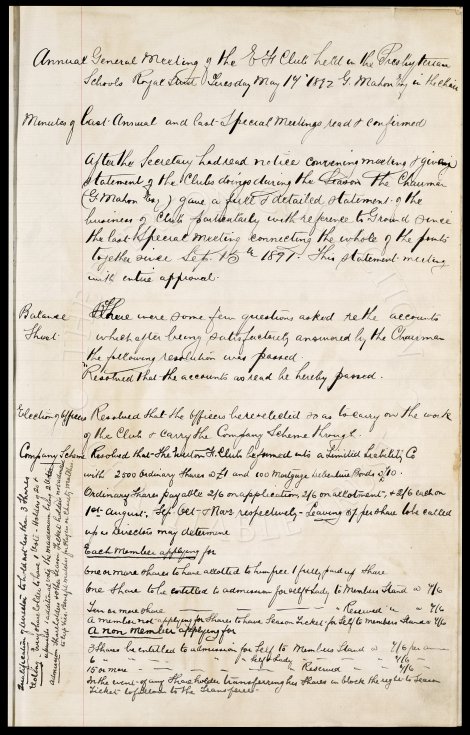 Annual General Meeting of the E F Club held in the Presbyterian
Schools Royal Street Tuesday May 17th 1892 G. Mahon Esq in the chair
Minutes of Last Annual and last Special Meetings read & confirmed
After the Secretary had read notice convening meeting & giving
statement of the Clubs doings during the Season The Chairman
(G Mahon Esq) gave a full & detailed statement of the
business of Club particularly with reference to Ground since
the last Special Meeting connecting the whole of the points
together since Sept 15th 1891. This statement meeting
with entire approval.
Balance There were some few questions asked re the accounts
Sheet. which after being satisfactorily answered by the Chairman
the following resolution was passed.
"Resolved that the accounts as read be hereby passed.
Election of Officers Resolved that the officers be reelected so as to carry on the work
of the Club & carry the Company Scheme through.
Company Scheme Resolved that the Everton F. Club be formed into a Limited Liability Co
with 2500 Ordinary Shares @ £1 and 100 Mortgage Debenture Bonds @ £10.
Ordinary Shares payable 2/6 on application, 2/6 on allotment, & 2/6 each on
1st August, Sep Oct & Nov respectively - Leaving 5/- per share to be called
up as Directors may determine
Each Member applying for
One or more Shares to have allotted to him free 1 fully paid up Share
One Share to be entitled to admission for self & Lady to Members Stand @ 7/6
Ten or more Shares - - - - - Reserved " @ 7/6
A member not applying for Shares to have Season Ticket for Self to members Stand @ 7/6
A non Member applying for
3 Shares be entitled to admission for Self to Members Stand @ 7/6 per annum
6 " " " " " Self & Lady " " 7/6 "
15 or more " " " " Reserved " " 7/6 "
In the event of any Shareholder transferring his Shares in block the right to Season
Ticket to persons to the Transferee
Qualification of Director to hold not less than 3 Shares
Voting - Every Shareholder to have 1 Vote -